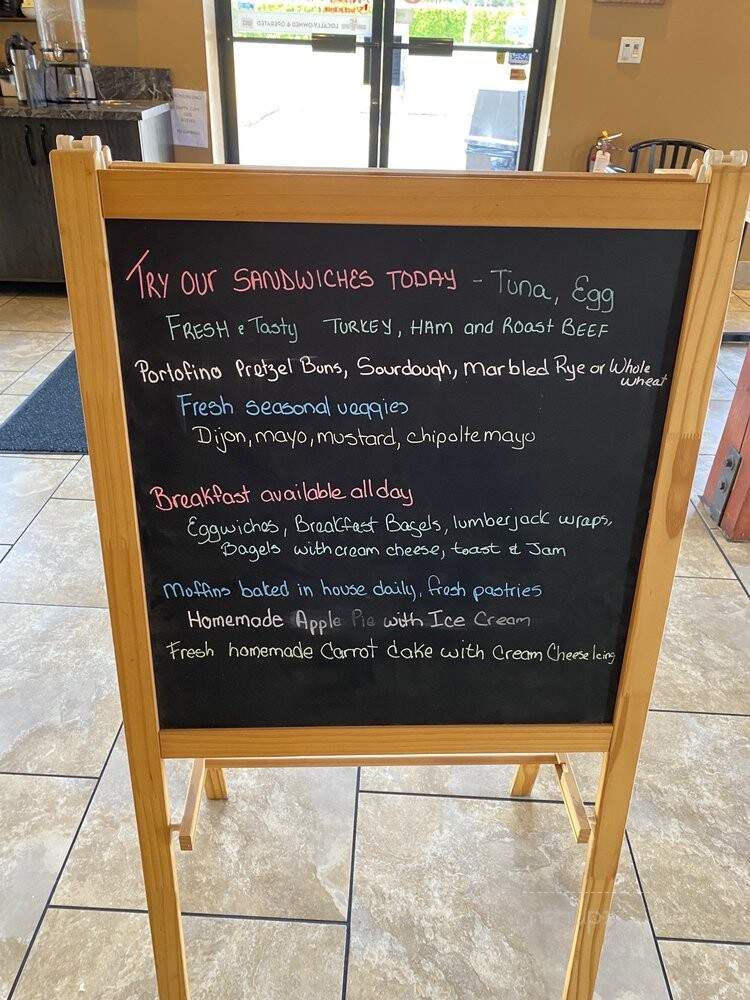 LOCALLY OWNED & OPERATED
TRY OUR SANDWICHES TODAY - Tuna, Egg
FRESH & Tasty TURKEY, HAM and ROAST BEEF
Portofino Pretzel Buns, Sourdough, Marbled Rye or Whole wheat
Fresh seasonal veggies
Dijon, mayo, mustard, chipolte mayo
Breakfast available all day
Eggwiches, Breakfast Bagels, lumberjack wraps,
Bagels with cream cheese, toast & Jam
Muffins baked in house daily, fresh pastries
Homemade Apple Pie with Ice Cream
Fresh homemade Carrot Cake with Cream Cheese Icing